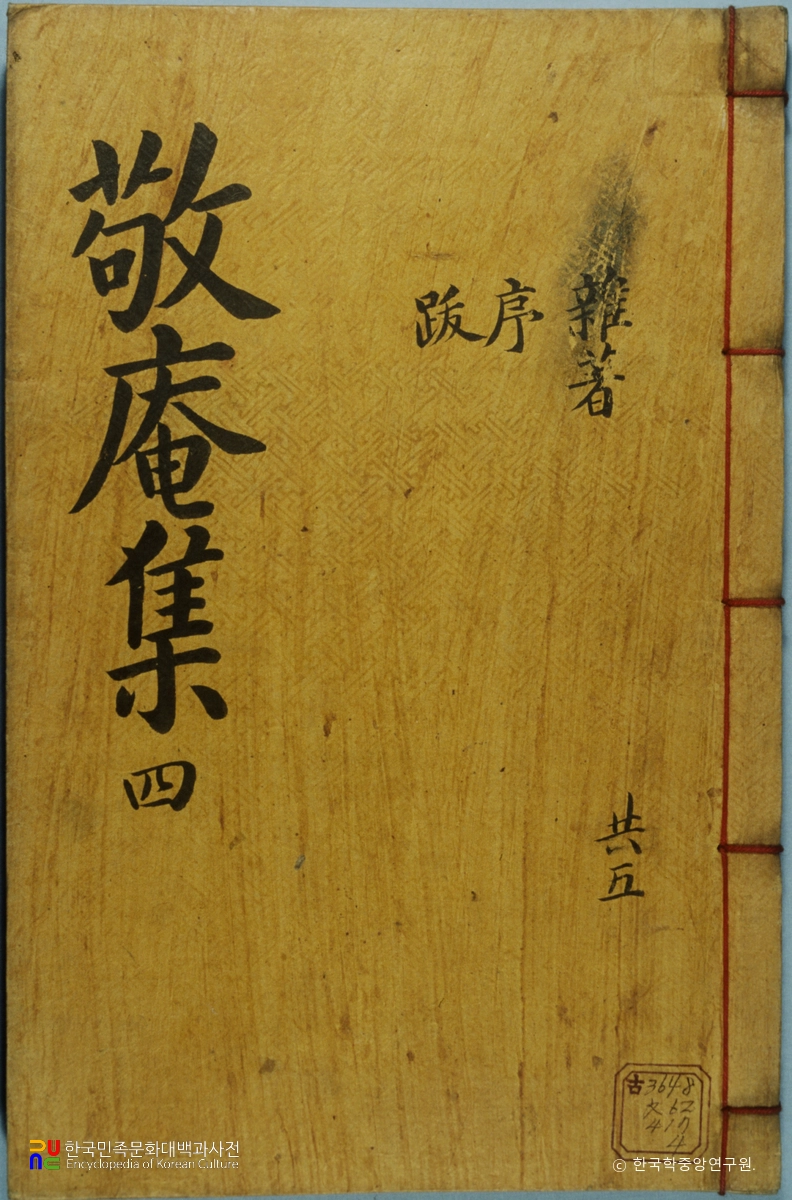 雜著
序
跋
敬庵集 四
共五
古3648
文62
417
4
한국민족문화대백과사전
Encyclopedia of Korean Culture
© 한국학중앙연구원.